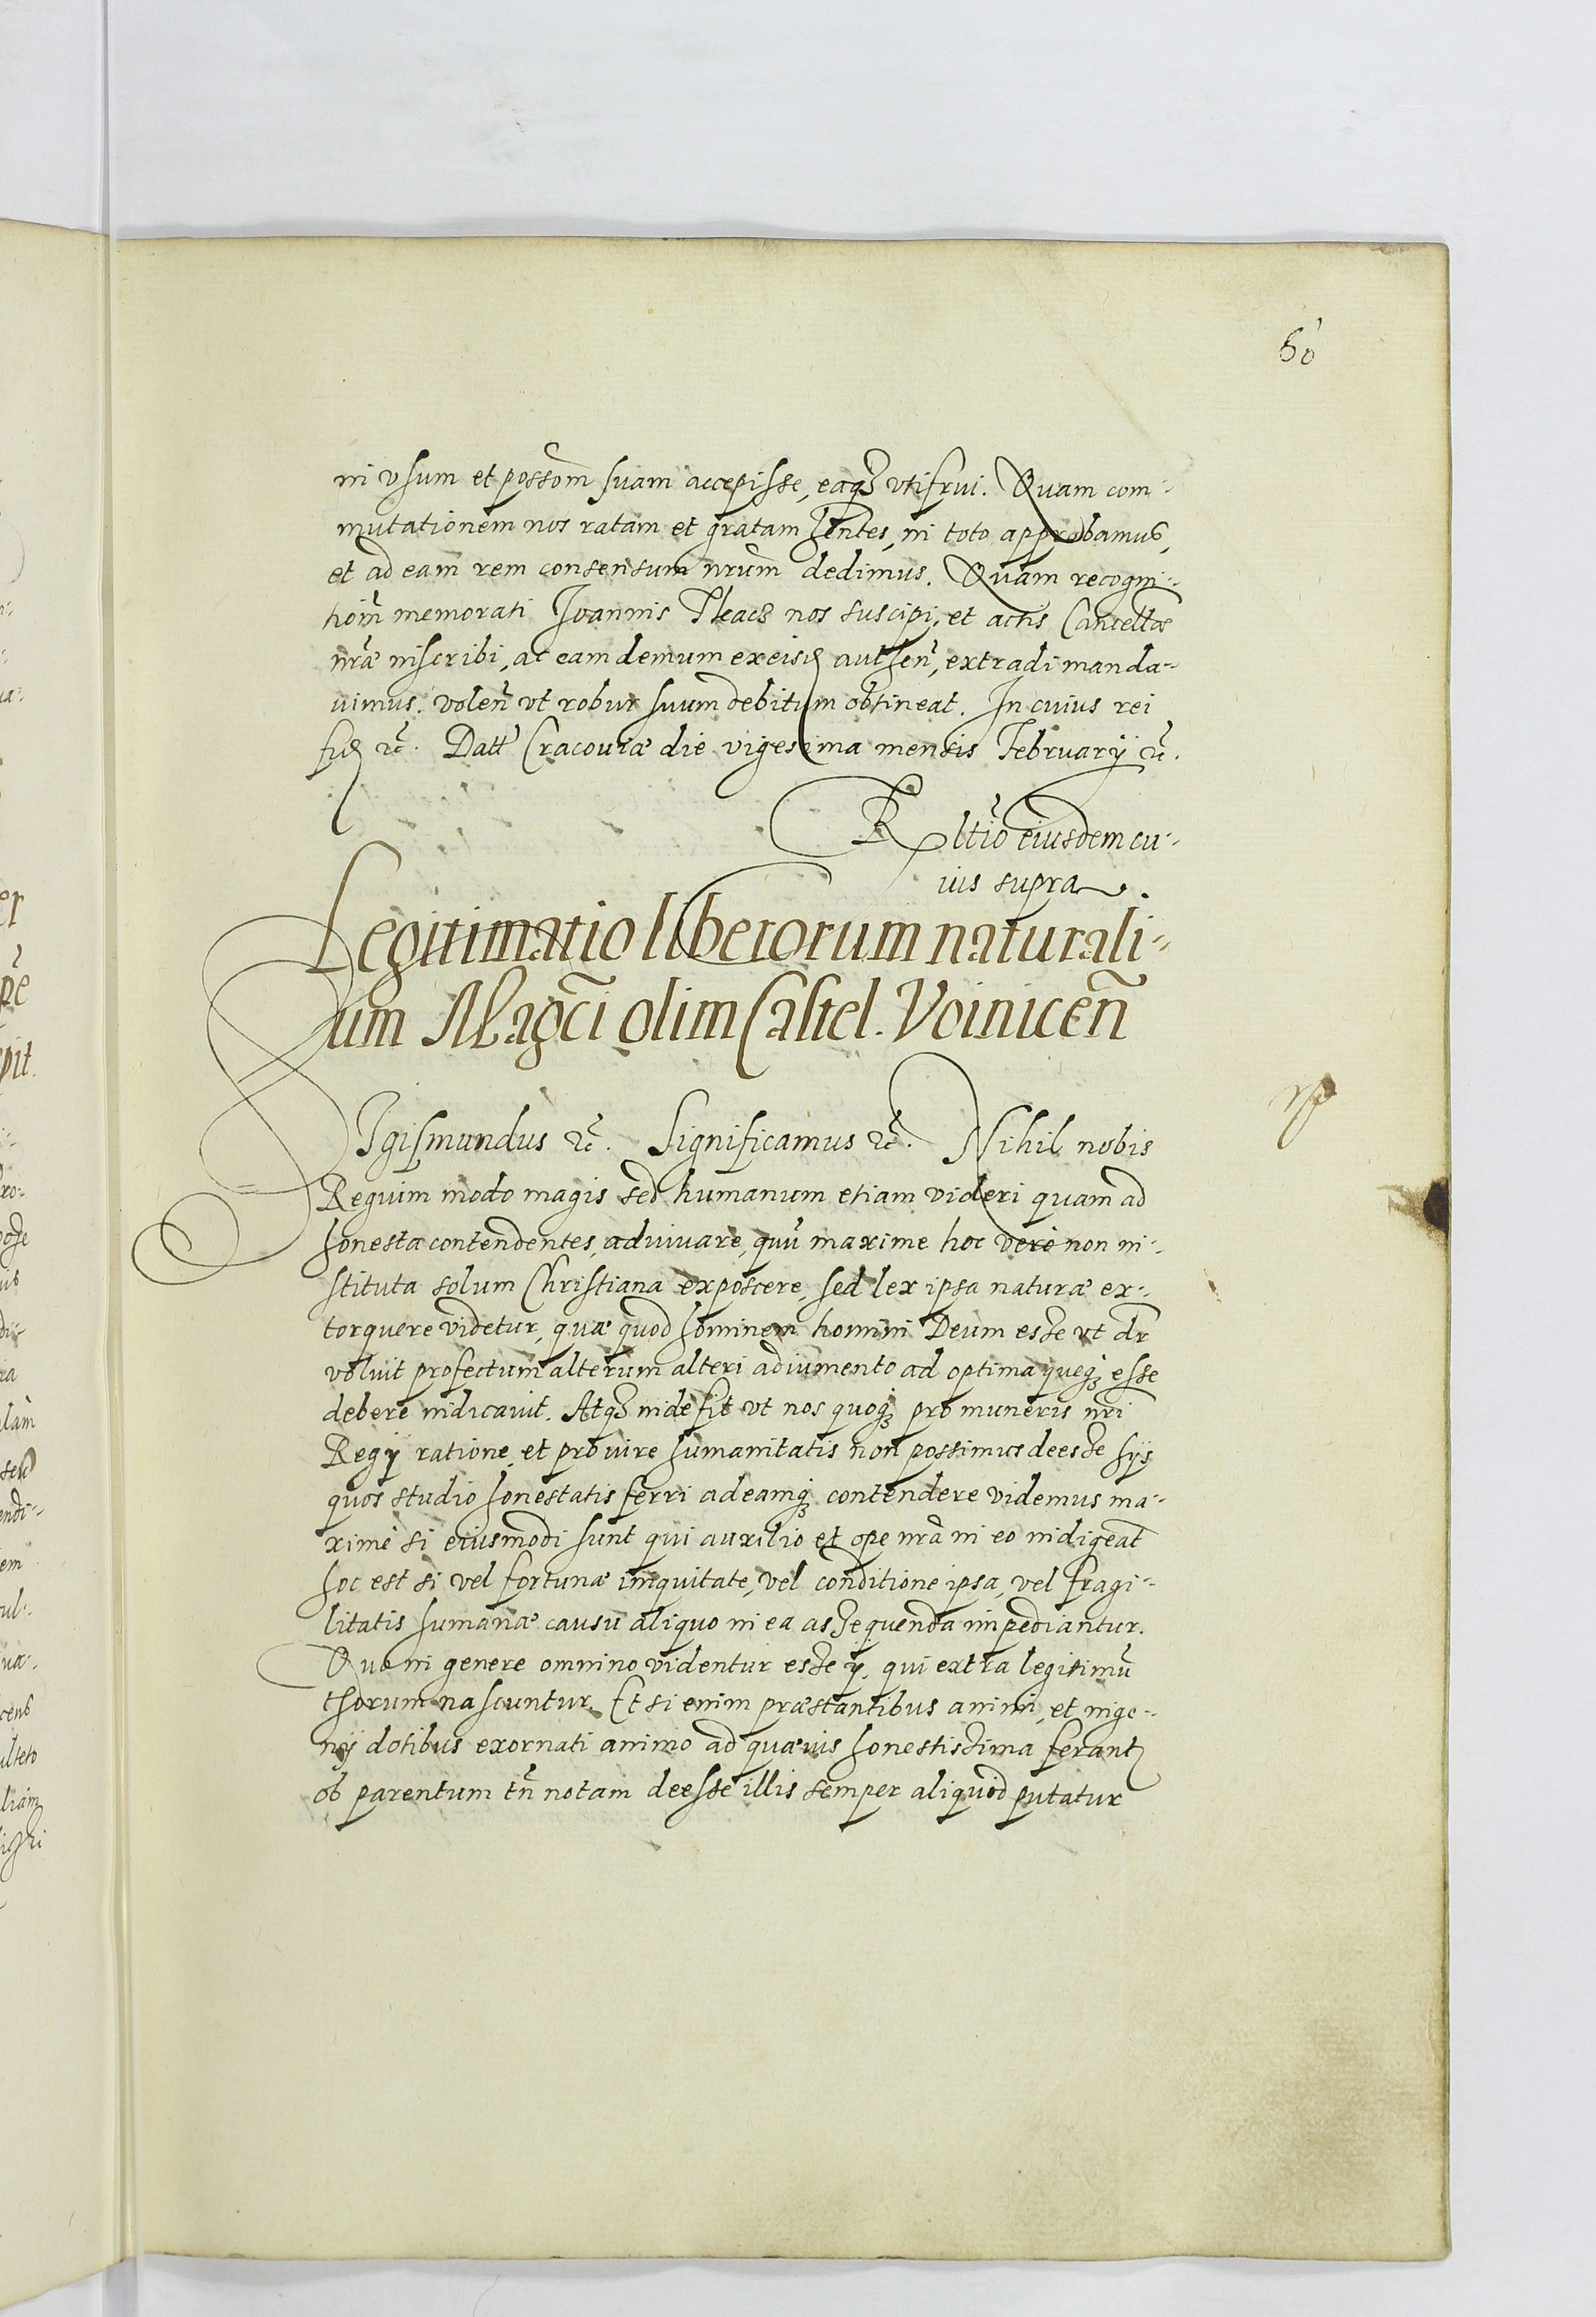 60
in vsum et possom̃ suam accepisse, eaqȝ vtifrui. Quam com-
mutationem nos ratam et gratam hñtes, in toto approbamus,
et ad eam rem consensum nrũm dedimus. Quam recogni-
tioñ memorati Joannis Tkacz nos suscipi, et actis Cancellae
nrãe inscribi, ac eam demum ex eisd authen̄, extradi manda-
uimus. volen̄ vt robur suum debitum obtineat. In cuius rei
fid ꝛc̃. Datt Cracouiae die vigesima mensis February ꝛc̃.
Rltĩo eiusdem cu-
ius supra.
Legitimatio liberorum naturali-
um Mag̃ci olim Castel. Voinicen̄
SIgismundus ꝛc̃. Significamus ꝛc̃. Nihil nobis
Regium modo magis sed humanum etiam videri quam ad
honesta contendentes, adiuuare, quũ maxime hoc vero non in-
stituta solum Christiana exposcere, sed lex ipsa naturae ex-
torquere videtur, quae quod hominem homini Deum esse vt dr̃
voluit profectum alterum alteri adiumento ad optima quęqȝ esse
debere indicauit. Atqȝ inde fit vt nos quoqȝ pro muneris nr̃i
Regij ratione, et pro iure humanitatis non possimus deesse hijs
quos studio honestatis ferri ad eamqȝ contendere videmus ma-
xime si eiusmodi sunt qui auxilio et ope nrã in eo indigeant̃
hoc est si vel fortunae iniquitate, vel conditione ipsa, vel fragi-
litatis humanae causu aliquo in ea assequenda impediantur.
Quo in genere omnino videntur esse ij, qui extra legitimũ
thorum nascuntur. Et si enim praestantibus animi, et inge-
nij dotibus exornati animo ad quaeuis honestissima ferant
ob parentum tñ notam deesse illis semper aliquod putatur